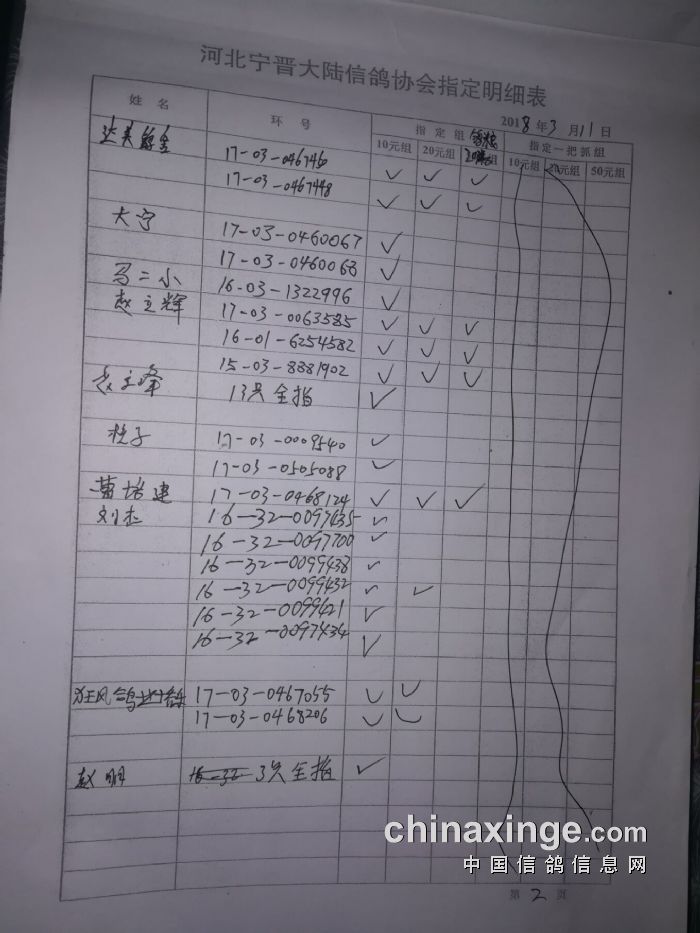 河北宁晋大陆信鸽协会指定明细表
2018年3月11日
姓名 环号 指定组 鸽粮 指定一把抓组
10元组 20元组 组 10元组 20元组 50元组
达美
17-03-046746
17-03-0467448
大宁
17-03-0460067
17-03-0460068
马二小 16-03-1322996
赵立辉 17-03-0063585
16-01-6254582
15-03-8881902
赵立峰 13只全指
柱子 17-03-0009540
17-03-0505088
曹培建 17-03-0468124
刘杰 16-32-0097435
16-32-0097700
16-32-0099438
16-32-0099432
16-32-0099421
16-32-0097434
狂风鸽 17-03-0467055
17-03-0468206
赵明 16-32 3只全指
chinaxinge.com
中国信鸽信息网
第2页